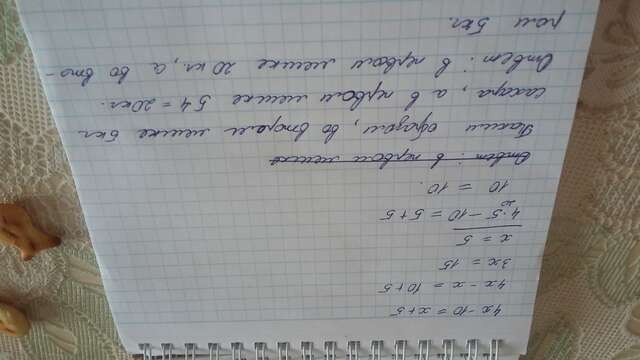 4x - 10 = x + 5
4x - x = 10 + 5
3x = 15
x = 5
4 · 5 - 10 = 5 + 5
20
10 = 10.
Ответ: в первом мешке
Таким образом, во втором мешке 5кг
сахара, а в первом мешке 5 4 = 20кг.
Ответ: в первом мешке 20 кг., а во вто-
ром 5кг.